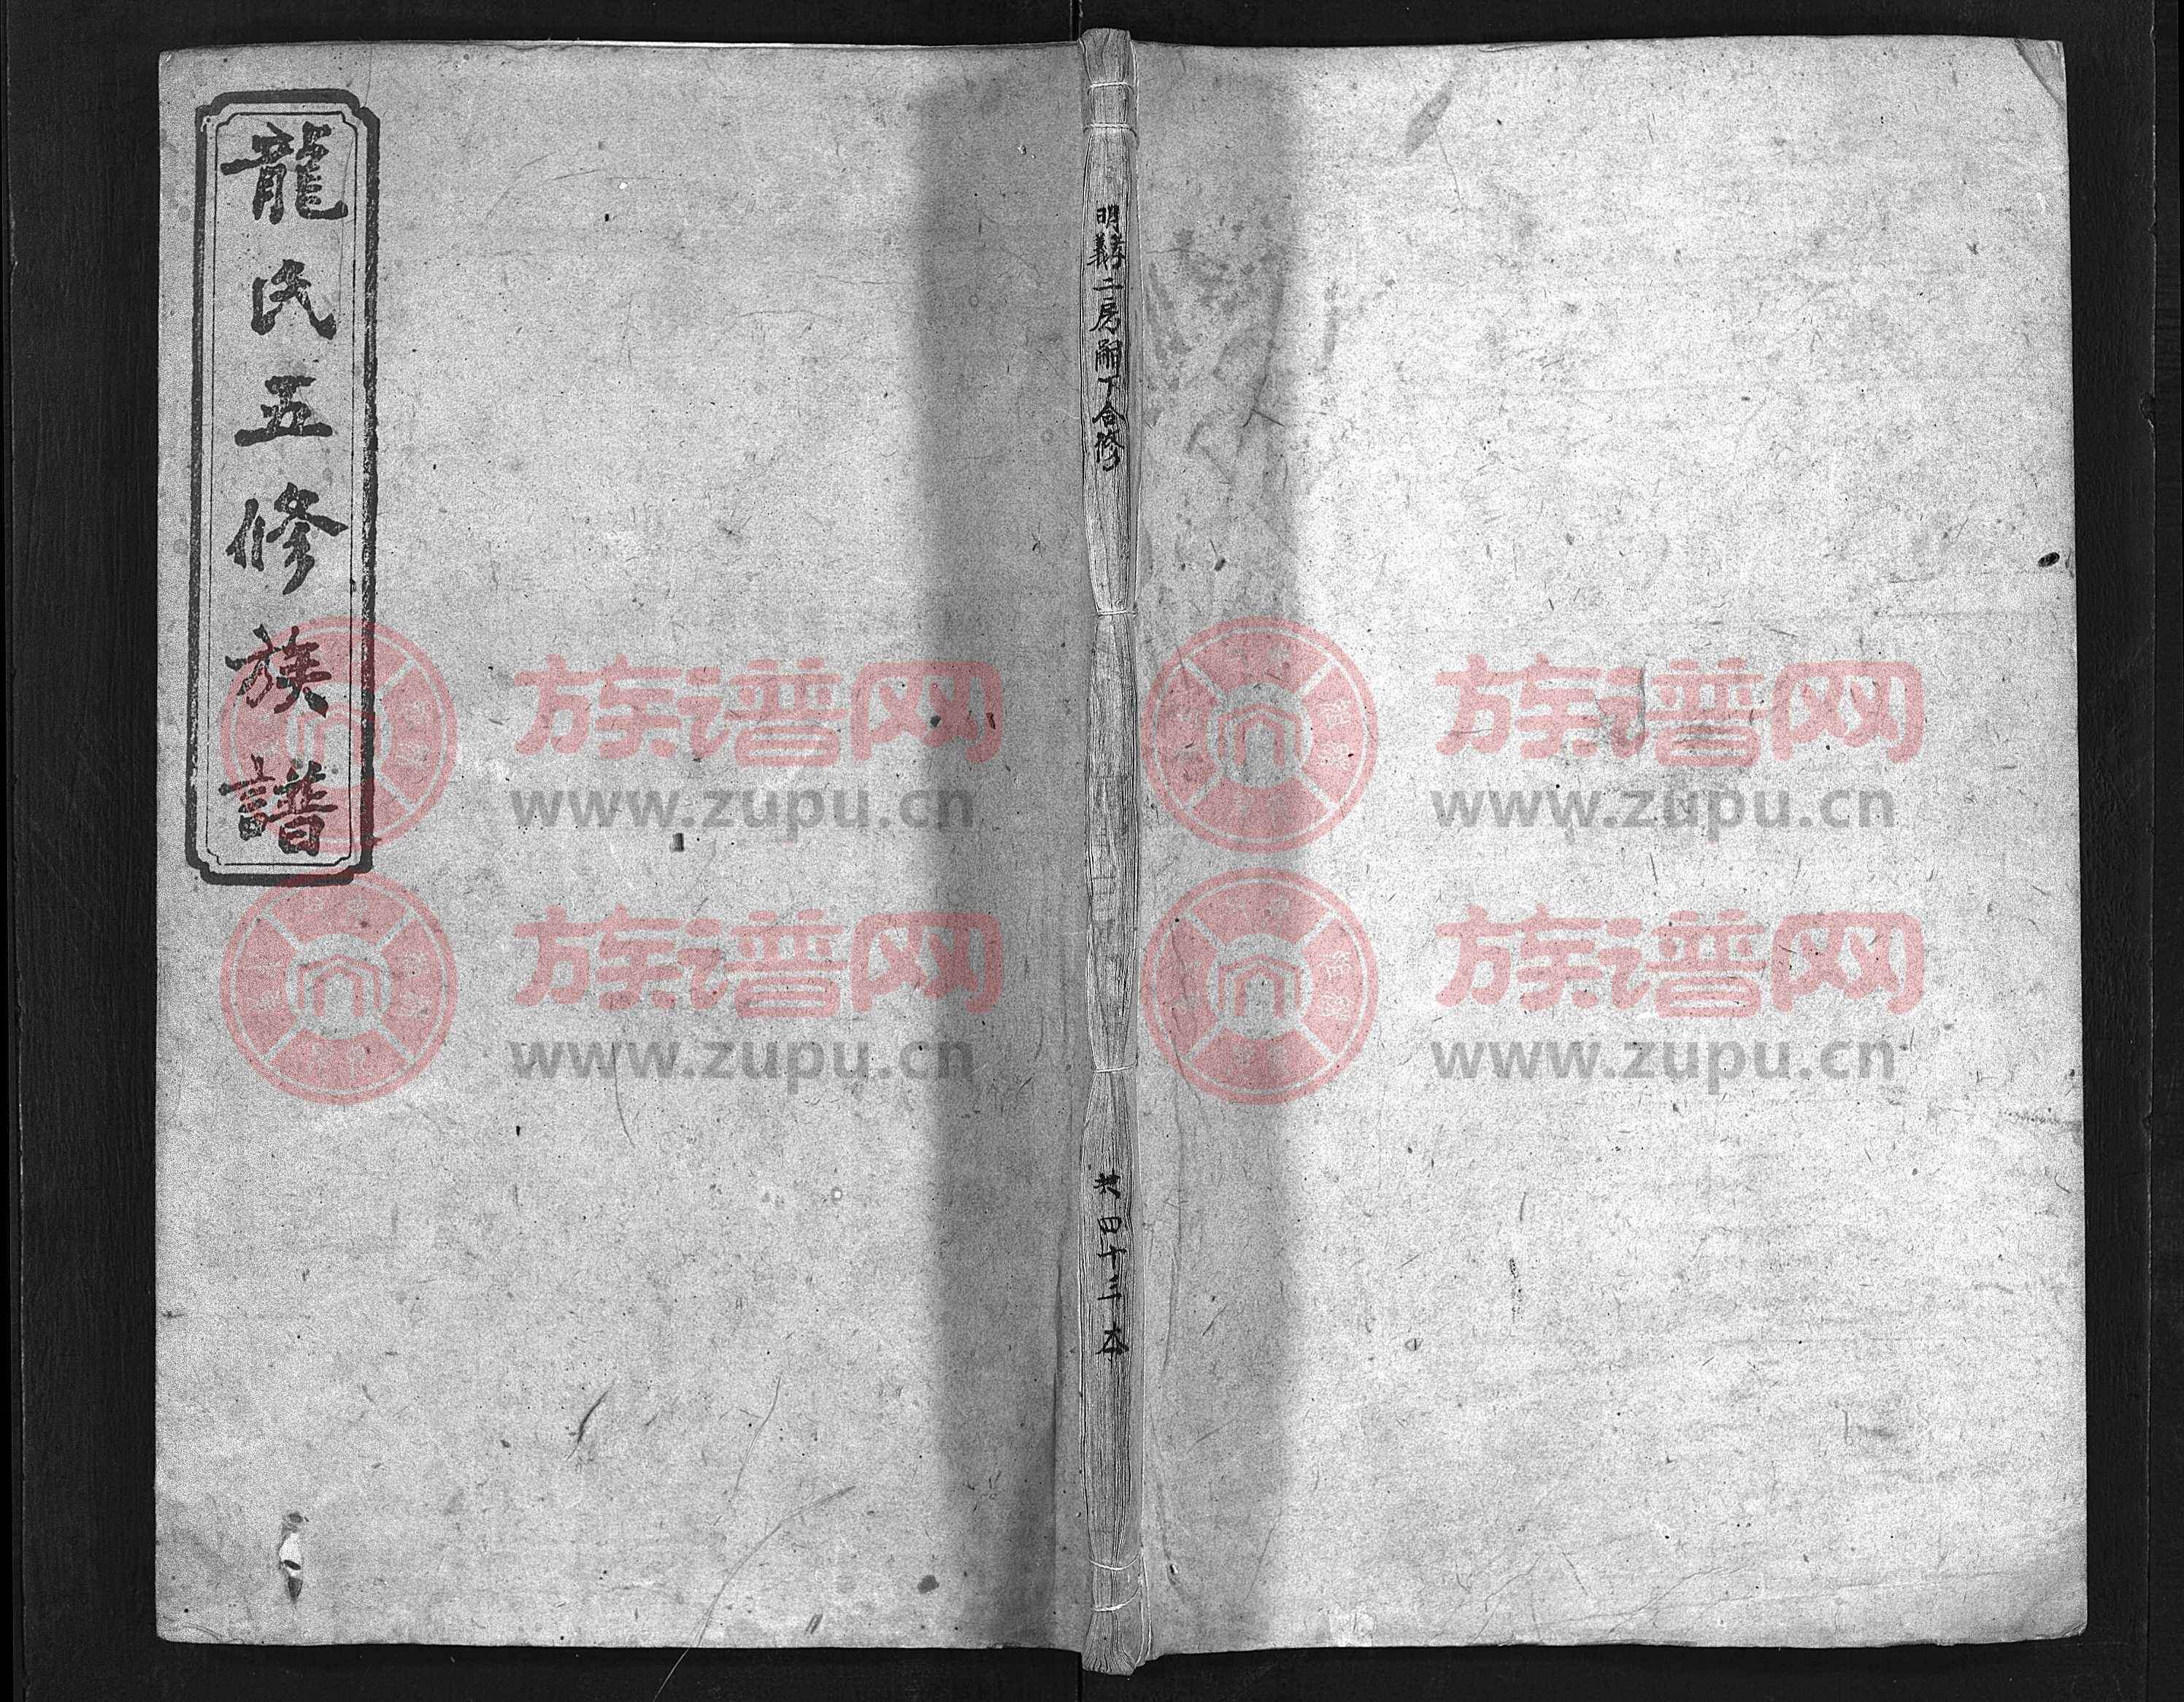 龍氏五修族譜
明義孝二房嗣下合修
共四十三本
族谱网
www.zupu.cn
族谱网
www.zupu.cn
族谱网
www.zupu.cn
族谱网
www.zupu.cn